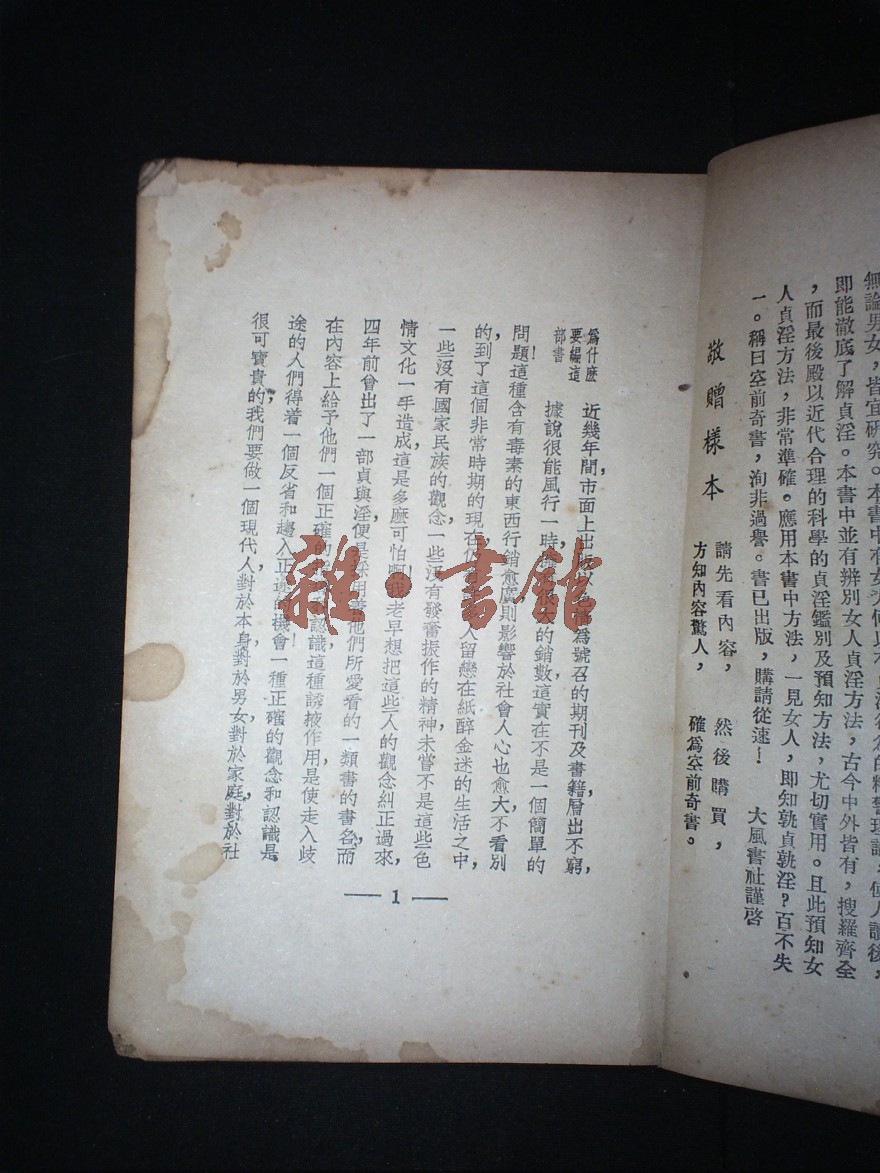 無論男女，皆宜研究。本書中有
即能澈底了解貞淫。本書中並有辨別女人貞淫方法，古今中外皆有，搜羅齊全
，而最後殿以近代合理的科學的貞淫鑑別及預知方法，尤切實用。且此預知女
人貞淫方法，非常準確。應用本書中方法，一見女人，即知孰貞孰淫？百不失
一。稱曰空前奇書，洵非過譽。書已出版，購請從速！
大風書社謹啓
敬贈樣本
請先看內容，然後購買，
方知內容驚人，確爲空前奇書。
爲什麽
要編這
部書
近幾年間，市面上出版以
爲號召的期刊及書籍，層出不窮，
據說很能風行一時，
的銷數，這實在不是一個簡單的
問題！這種含有毒素的東西行銷愈廣，則影響於社會人心也愈大，不看別
的，到了這個非常時期的現在，仍
人留戀在紙醉金迷的生活之中，
一些沒有國家民族的觀念，一些沒有發奮振作的精神，未嘗不是這些色
情文化一手造成，這是多麽可怕啊！我老早想把這些人的觀念糾正過來，
四年前曾出了一部貞與淫，便是採用着他們所愛看的一類書的書名，而
在內容上給予他們一個正確的
認識，這種誘掖作用，是使走入歧
途的人們，得着一個反省和趨入正途的機會！一種正確的觀念和認識，是
很可寶貴的，我們要做一個現代人，對於本身，對於男女，對於家庭，對於社
— 1 —
雜·書館